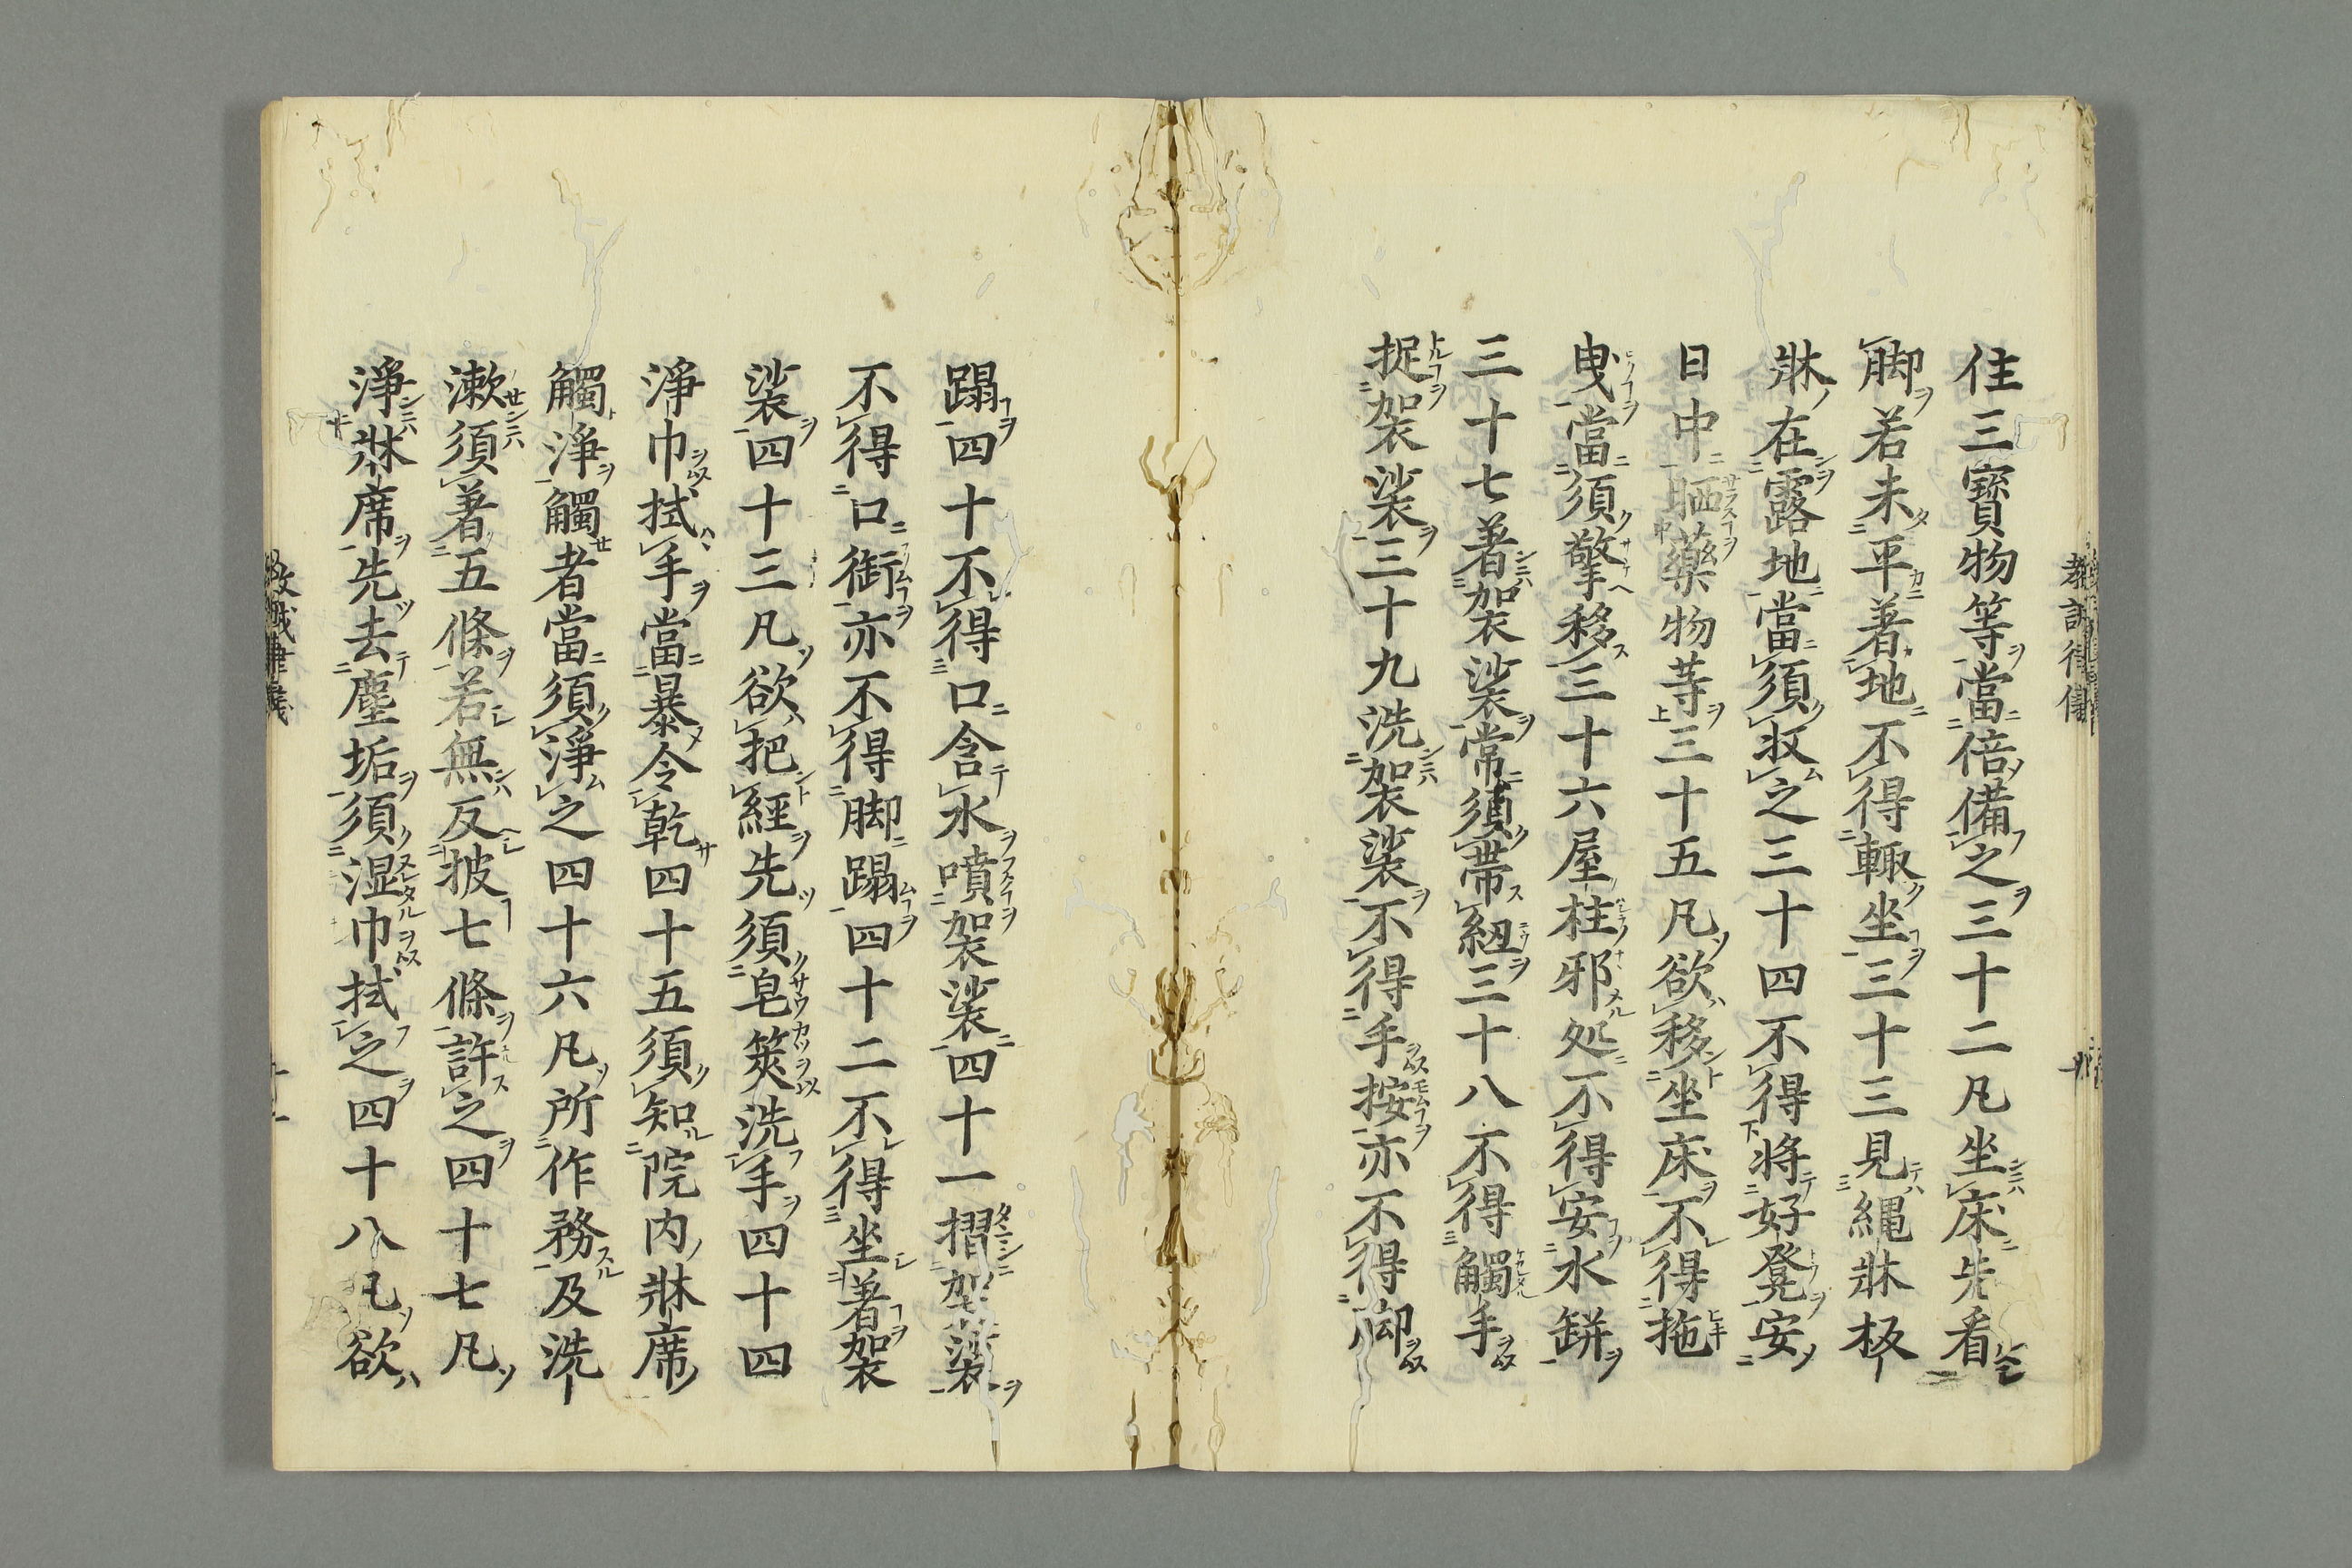 住三寳物等當倍備之三十二凡坐床先看
脚若未平著地不得輙坐三十三見縄牀板
牀在露地當須収之三十四不得将好凳安
日中晒藥物䓁三十五凡欲移坐床不得拖
曳當須擎移三十六屋柱邪処不得安水缾
三十七著袈裟常須帶紐三十八不得觸手
捉袈裟三十九洗袈裟不得手按亦不得脚
蹋四十不得口含水噴袈裟四十一摺袈裟
不得口銜亦不得脚蹋四十二不得坐著袈
裟四十三凡欲把經先須皂筴洗手四十四
淨巾拭手當暴令乾四十五須知院内牀席
觸淨觸者當須淨之四十六凡所作務及洗
漱須著五條若無反披七條許之四十七凡
淨牀席先去塵垢須湿巾拭之四十八凡欲